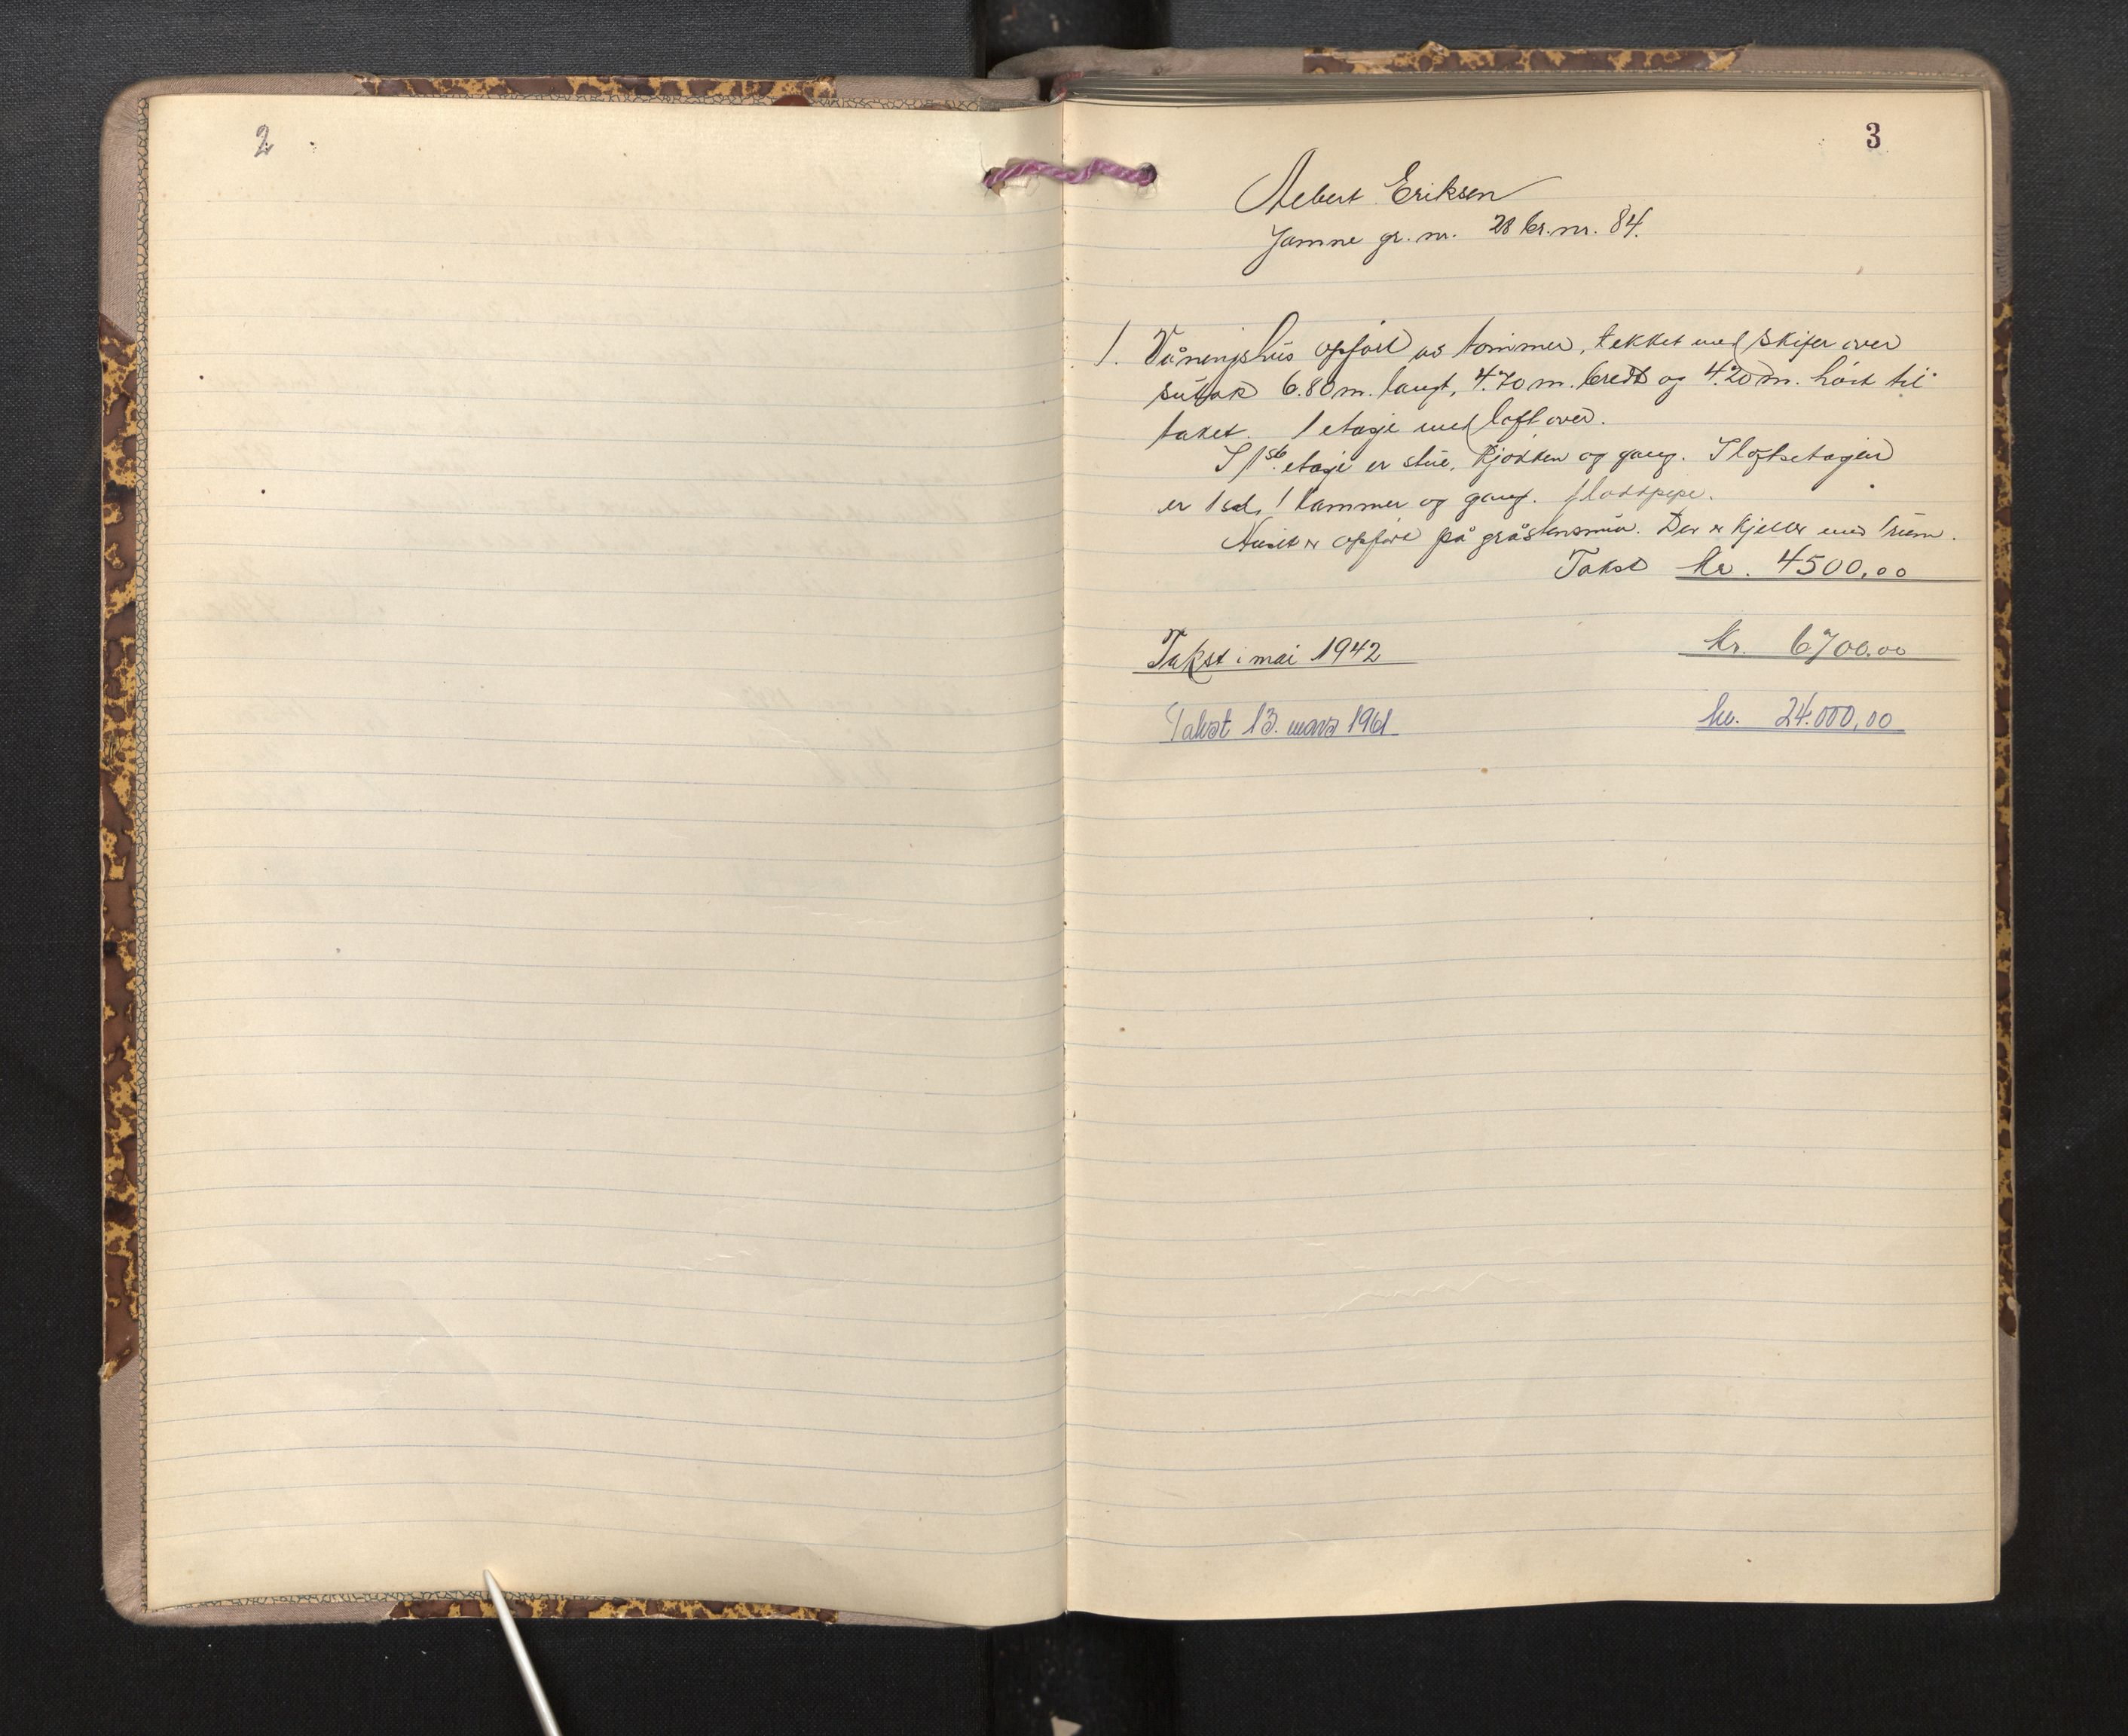 2
3
Albert Eriksen
Jamne gr. nr. 28 br. nr. 84.
1. Våningshus opført av tømmer, tekket med skifer over
sutak 6.80 m. langt, 4.70 m. bredt og 4.20 m. høit til
taket. 1 etasje med loft over.
I 1ste etasje er stue, kjøkken og gang. I loftsetagen
er 1 sal, 1 kammer og gang.
Huset er opført på gråstensmur. Der er kjeller med 1 rum.
Takst kr. 4500,00
Takst i mai 1942 kr. 6700.00
Takst 13. mars 1961 kr. 24.000,00